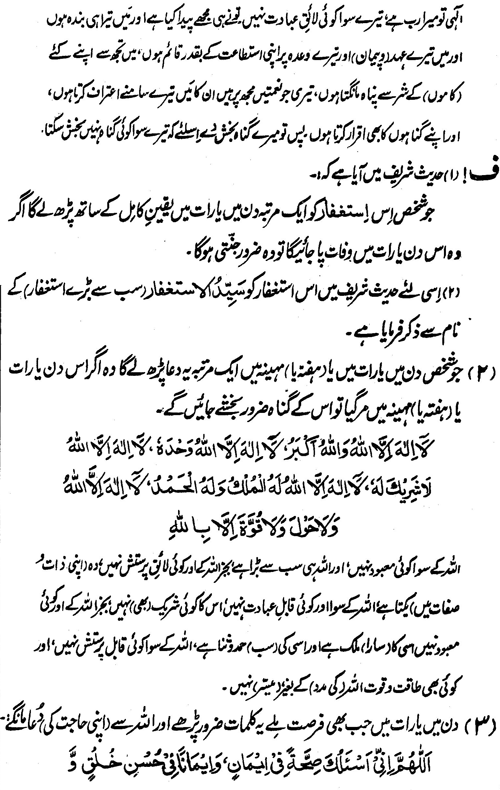 الٰہی تو میرا رب ہے، تیرے سوا کوئی لائقِ عبادت نہیں، تونے ہی مجھے پیدا کیا ہے اور مَیں تیرا ہی بندہ ہوں
اور میں تیرے عہد (و پیمان) اور تیرے وعدہ پر اپنی استطاعت کے بقدر قائم ہوں، میں تجھ سے اپنے کئے
(کاموں) کے شر سے پناہ مانگتا ہوں، تیری جو نعمتیں مجھ پر ہیں ان کا مَیں تیرے سامنے اعتراف کرتا ہوں،
اور اپنے گناہوں کا بھی اقرار کرتا ہوں، پس تو میرے گناہ بخش دے اسلئے کہ تیرے سوا کوئی گناہ نہیں بخش سکتا۔
ف! (۱) حدیث شریف میں آیا ہے کہ:۔
جو شخص اِس اِستغفار کو ایک مرتبہ دن میں یا رات میں یقینِ کامل کے ساتھ پڑھ لے گا اگر
وہ اس دن یا رات میں وفات پا جائیگا تو وہ ضرور جنّتی ہوگا۔
(۲) اِسی لئے حدیث شریف میں اس استغفار کو سَیِّدُ الاستغفار (سب سے بڑے استغفار) کے
نام سے ذکر فرمایا ہے۔
(۲) جو شخص دن میں یا رات میں یا (ہفتہ یا) مہینہ میں ایک مرتبہ یہ دعا پڑھ لے گا وہ اگر اس دن یا رات
یا (ہفتہ یا) مہینہ میں مر گیا تو اس کے گناہ ضرور بخشے جائیں گے۔
لَا اِلٰهَ اِلَّا اللهُ وَاللهُ اَكْبَرُ، لَا اِلٰهَ اِلَّا اللهُ وَحْدَهٗ، لَا اِلٰهَ اِلَّا اللهُ
لَا شَرِيْكَ لَهٗ، لَا اِلٰهَ اِلَّا اللهُ لَهُ الْمُلْكُ وَلَهُ الْحَمْدُ، لَا اِلٰهَ اِلَّا اللهُ
وَلَا حَوْلَ وَلَا قُوَّةَ اِلَّا بِاللهِ
اللہ کے سوا کوئی معبود نہیں، اور اللہ ہی سب سے بڑا ہے، بجز اللہ کے اور کوئی لائقِ پرستش نہیں، وہ (اپنی ذات و
صفات میں) یکتا ہے، اللہ کے سوا اور کوئی قابلِ عبادت نہیں، اس کا کوئی شریک (بھی) نہیں، بجز اللہ کے اور کوئی
معبود نہیں اسی کا (سارا) ملک ہے اور اسی کی (سب) حمد و ثنا ہے، اللہ کے سوا کوئی قابلِ پرستش نہیں، اور
کوئی بھی طاقت و قوت اللہ (کی مدد) کے بغیر (میسّر) نہیں۔
(۳) دن میں یا رات میں جب بھی فرصت ملے یہ کلمات ضرور پڑھے اور اللہ سے (اپنی حاجت کی) دُعا مانگے:۔
اَللّٰهُمَّ اِنِّیْ اَسْئَلُكَ صِحَّةً فِیْ اِیْمَانٍ، وَاِیْمَانًا فِیْ حُسْنِ خُلُقٍ وَّ